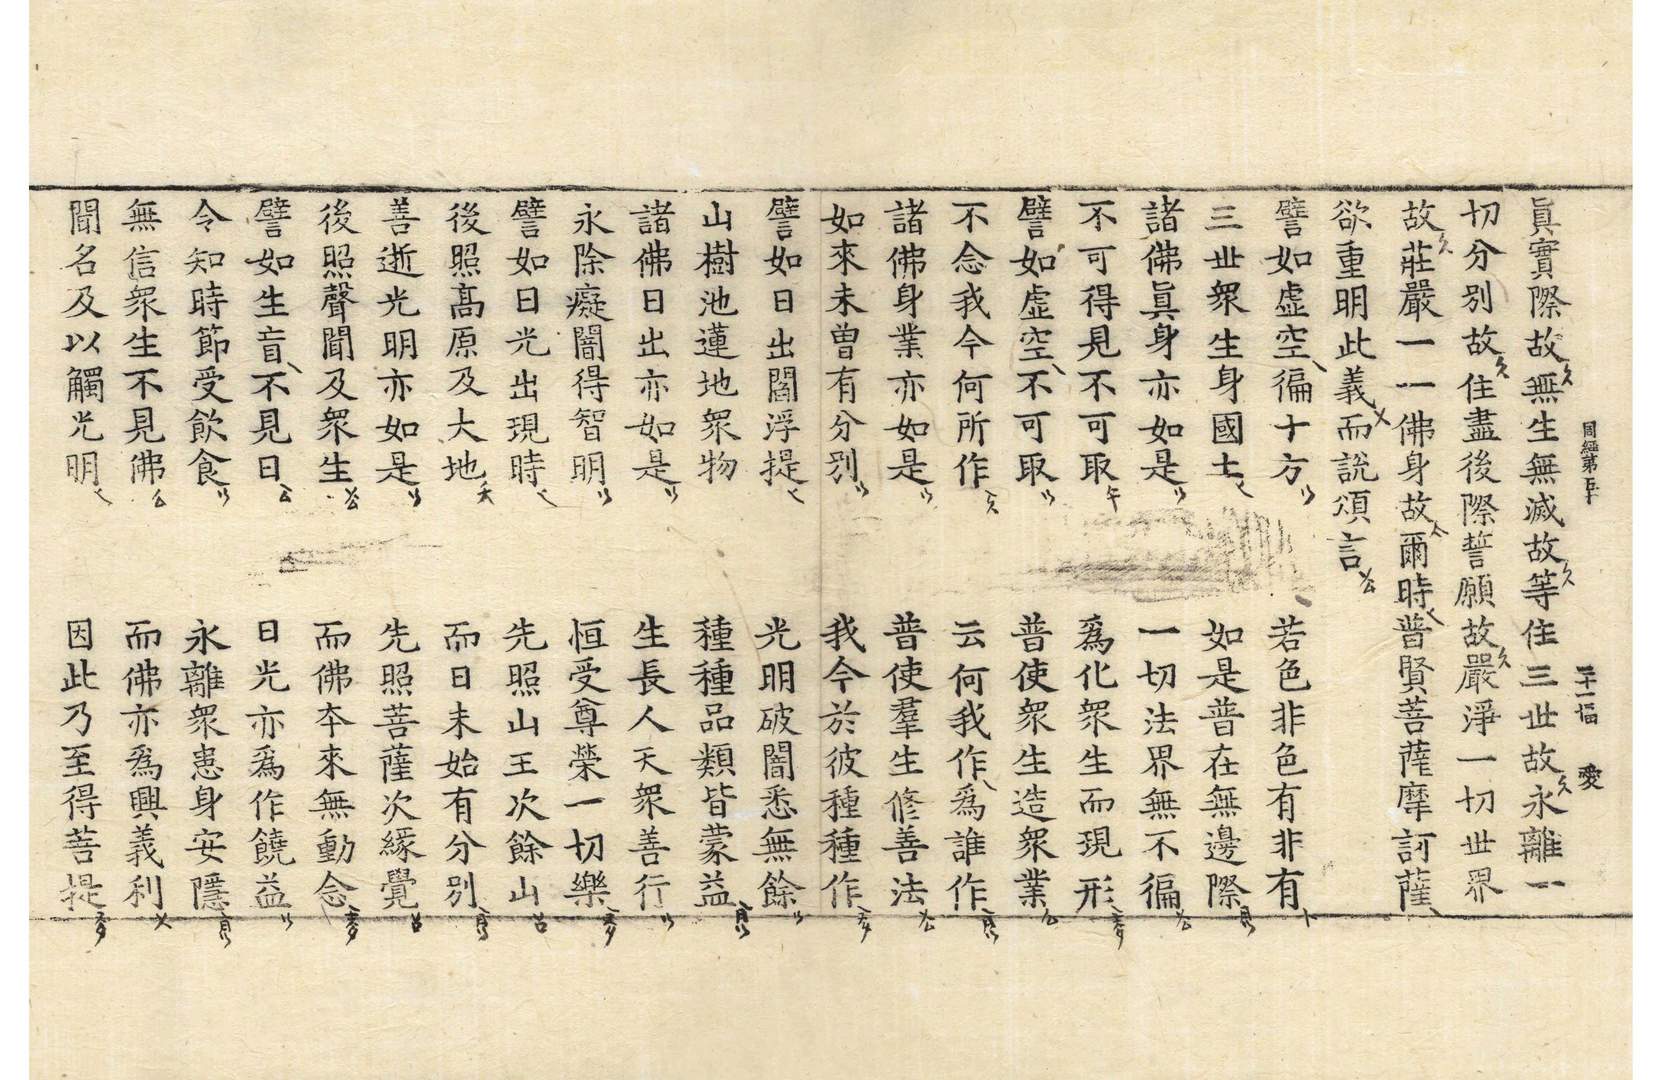 周經第五十 愛
眞實際故無生無滅故等住三世故永離一
切分別故住盡後際誓願故嚴淨一切世界
故莊嚴一一佛身故爾時普賢菩薩摩訶薩
欲重明此義而說頌言
譬如虛空徧十方 若色非色有非有
三世衆生身國土 如是普在無邊際
諸佛眞身亦如是 一切法界無不徧
不可得見不可取 爲化衆生而現形
譬如虛空不可取 普使衆生造衆業
不念我今何所作 云何我作爲誰作
諸佛身業亦如是 普使羣生修善法
如來未曾有分別 我今於彼種種作
譬如日出閻浮提 光明破闇悉無餘
山樹池蓮地衆物 種種品類皆蒙益
諸佛日出亦如是 生長人天衆善行
永除癡闇得智明 恒受尊榮一切樂
譬如日光出現時 先照山王次餘山
後照髙原及大地 而日未始有分別
善逝光明亦如是 先照菩薩次緣覺
後照聲聞及衆生 而佛夲來無動念
譬如生盲不見日 日光亦爲作饒益
令知時節受飮食 永離衆患身安隱
無信衆生不見佛 而佛亦爲興義利
聞名及以觸光明 因此乃至得菩提